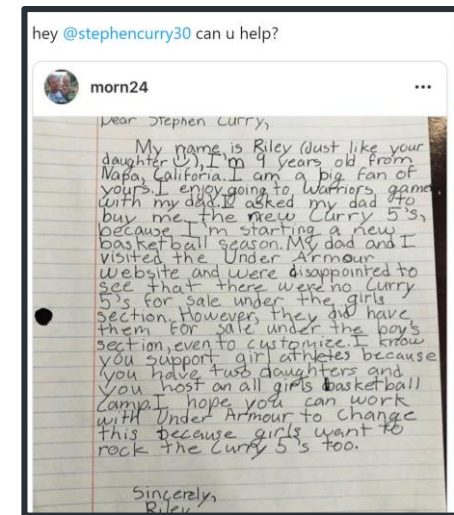 hey @stephencurry30 can u help?
morn24
Dear Stephen Curry,
My name is Riley (Just like your
daughter), I'm 9 years old from
Napa, Califoria. I am a big fan of
yours. I enjoy going to Warriors game
with my dad. I asked my dad to
buy me the new Curry 5's,
because I'm starting a new
basketball season. My dad and I
visited the Under Armour
website and were disappointed to
see that there were no Curry
5's for sale under the girls
section. However, they did have
them for sale under the boy's
section, even to customize. I know
you support girl athletes because
you have two daughters and
you host an all girls basketball
camp. I hope you can work
with Under Armour to change
this because girls want to
rock the Curry 5's too.
Sincerely,
Riley